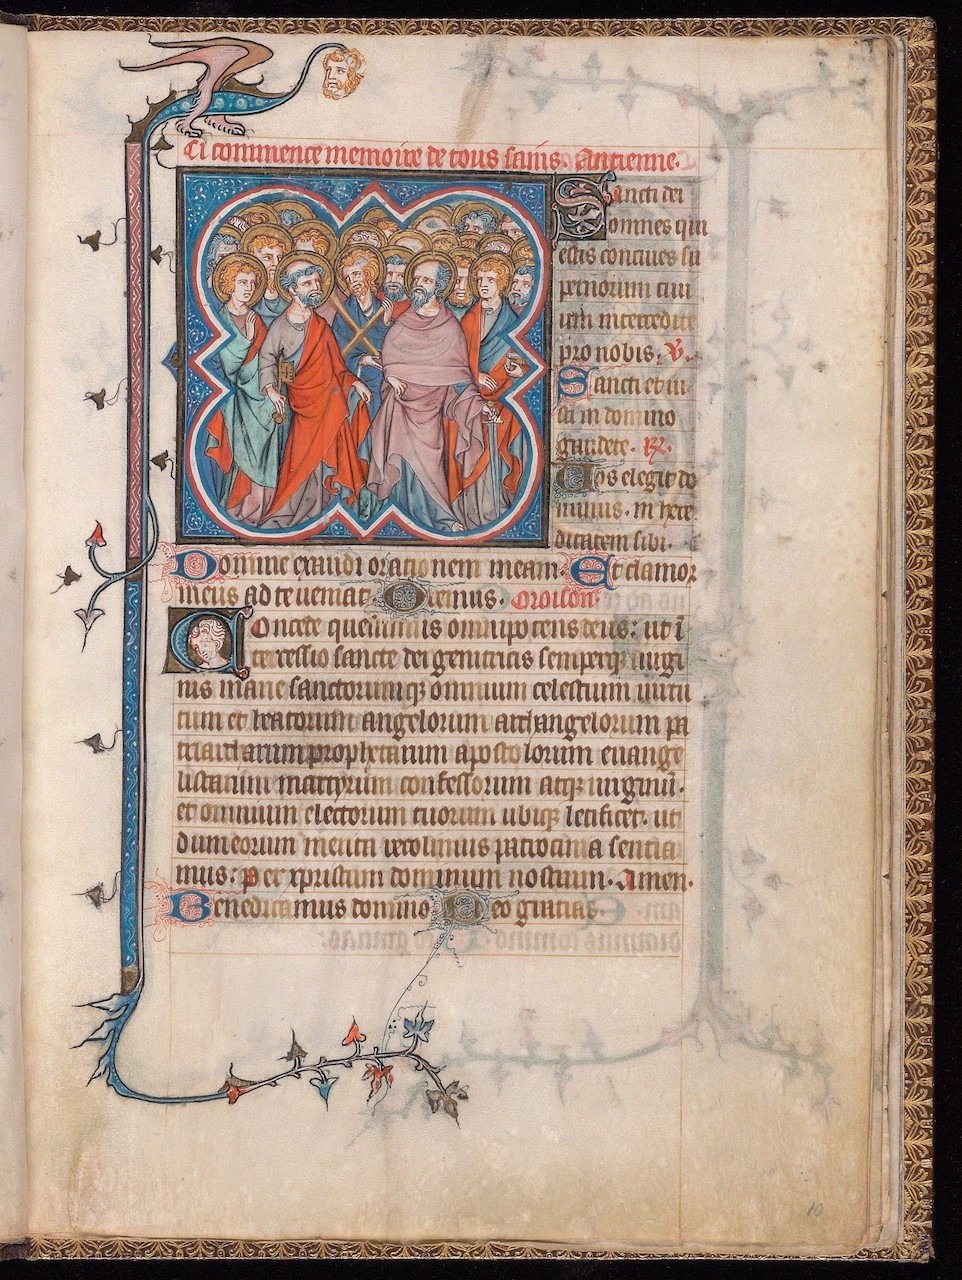 Ci commence memoire de tous sains. Antienne.
Sancti dei
omnes qui
estis conciues su
pernorum ciui
um intercedite
pro nobis. V.
Sancti et iu
sti in domino
gaudete. R.
Vos elegit do
minus. in here
ditatem sibi.
Domine exaudi orationem meam. Et clamor
meus ad te ueniat. Oremus. Oroison.
Concede quesumus omnipotens deus: ut i
tercessio sancte dei genitricis semperq uirgi
nis marie sanctorumq omnium celestium uirtu
tum et beatorum angelorum archangelorum pa
triarcharum prophetarum apostolorum euange
listarum martyrum confessorum atq uirginu.
et omnium electorum tuorum ubiq letificet. ut
dum eorum merita recolimus patrocinia sentia
mus: per xpristum dominum nostrum. Amen.
Benedicamus domino. Deo gratias.
10